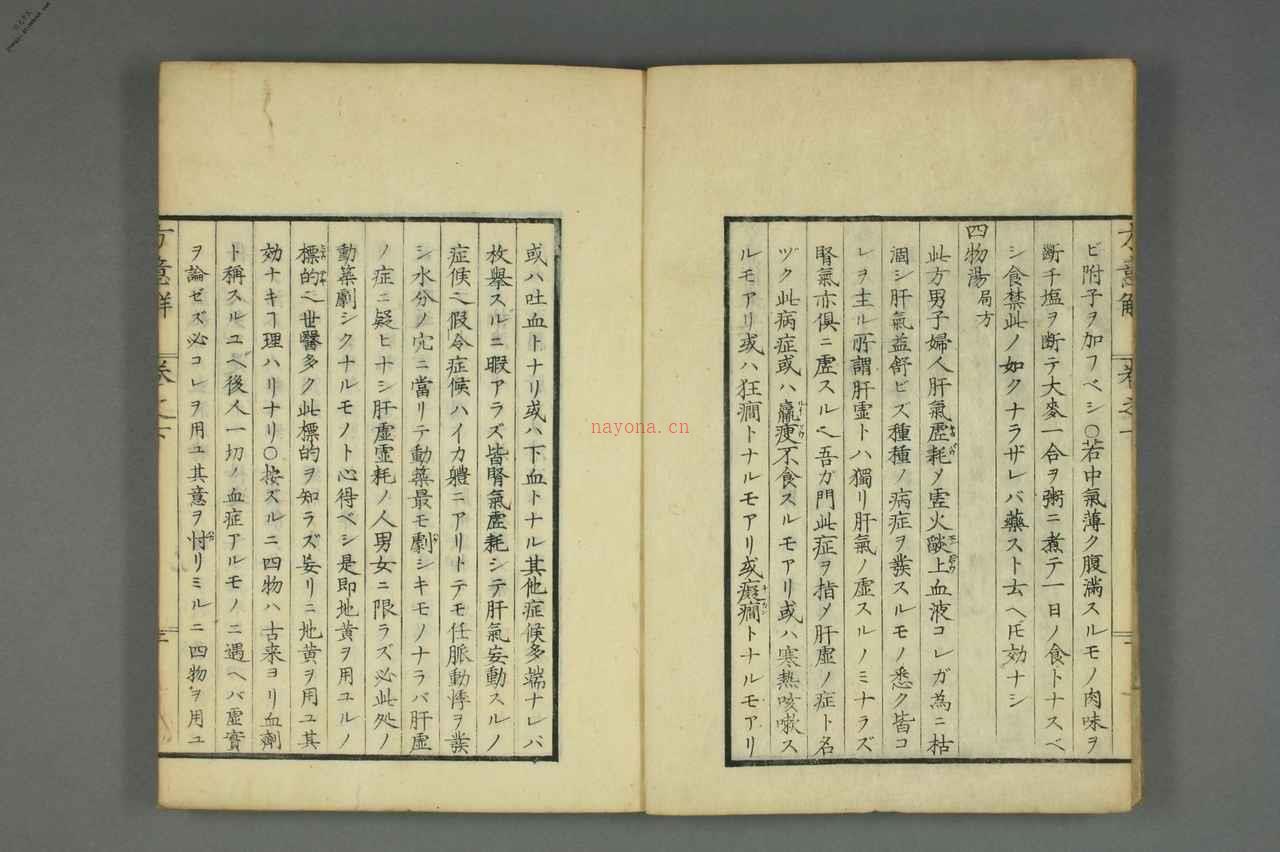 ビ附子ヲ加フベシ○若中氣薄ク腹滿スルモノ肉味ヲ
断チ塩ヲ断テ大麥一合ヲ粥ニ煮テ一日ノ食トナスベ
シ食禁此ノ如クナラザレバ藥スト云ヘ𪜈効ナシ
四物湯 局方
此方男子婦人肝氣虚耗ノ虚火酸上血液コレガ為ニ枯
涸シ肝氣益舒ビズ種種ノ病症ヲ發スルモノ悉ク皆コ
レヲ主ル所謂肝虚トハ獨リ肝氣ノ虚スルノミナラズ
腎氣亦俱ニ虚スル也吾ガ門此症ヲ指メ肝虚ノ症ト名
ヅク此病症或ハ羸瘦不食スルモアリ或ハ寒熱咳嗽ス
ルモアリ或ハ狂癇トナルモアリ或癡癇トナルモアリ
或ハ吐血トナリ或ハ下血トナル其他症候多端ナレバ
枚擧スルニ暇アラズ皆腎氣虚耗シテ肝氣妄動スルノ
症候也假令症候ハイカ軆ニアリトテモ任脈動悸ヲ發
シ水分ノ穴ニ當リテ動築最モ劇シキモノナラバ肝虚
ノ症ニ疑ヒナシ肝虚虚耗ノ人男女ニ限ラズ必此処ノ
動築劇シクナルモノト心得ベシ是即地黄ヲ用ユルノ
標的也世醫多ク此標的ヲ知ラズ妄リニ地黄ヲ用ユ其
効ナキヿ理ハリナリ○按ズルニ四物ハ古来ヨリ血劑
ト稱スルユヘ後人一切ノ血症アルモノニ遇ヘバ虚實
ヲ論ゼズ必コレヲ用ユ其意ヲ忖リミルニ四物ヲ用ユ
nayona.cn